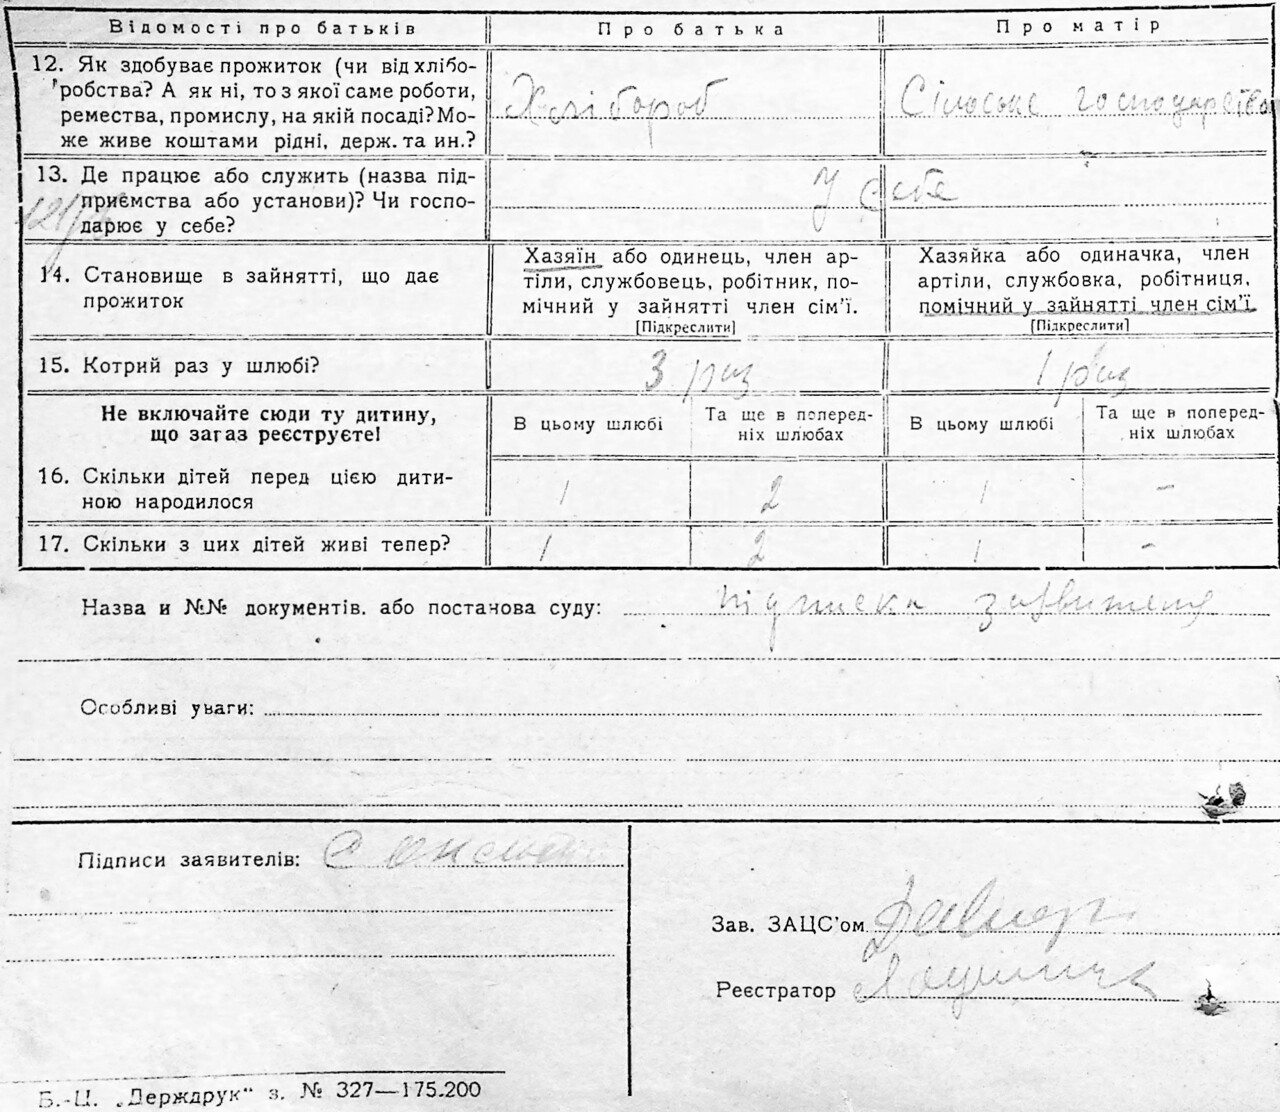 Відомості про батьків Про батька Про матір
12. Як здобуває прожиток (чи від хлібо-
робства? А як ні, то з якої саме роботи,
ремества, промислу, на якій посаді? Мо-
же живе коштами рідні, держ. та ин.?
Хлібороб Сільське господарство
13. Де працює або служить (назва під-
приємства або установи)? Чи госпо-
дарює у себе?
У себе
14. Становище в зайнятті, що дає
прожиток
Хазяїн або одинець, член ар-
тіли, службовець, робітник, по-
мічний у зайнятті член сім'ї.
[Підкреслити]
Хазяйка або одиначка, член
артіли, службовка, робітниця,
помічний у зайнятті член сім'ї.
[Підкреслити]
15. Котрий раз у шлюбі? 3 раз 1 раз
Не включайте сюди ту дитину,
що загаз реєструєте!
В цьому шлюбі
Та ще в поперед-
ніх шлюбах
В цьому шлюбі
Та ще в поперед-
ніх шлюбах
16. Скільки дітей перед цією дити-
ною народилося
1 2 1 -
17. Скільки з цих дітей живі тепер? 1 2 1 -
Назва и №№ документів. або постанова суду: підписка заявителя
Особливі уваги:
Підписи заявителів:
Зав. ЗАЦС'ом
Реєстратор
Б.-Ц. „Держдрук" з. № 327—175.200